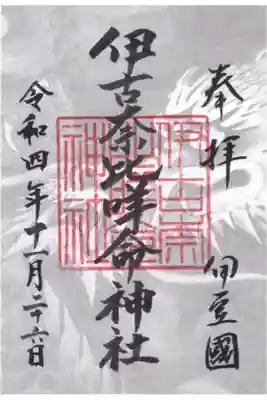 奉拝
伊豆國
伊古奈比咩命神社
令和四年十一月二十六日